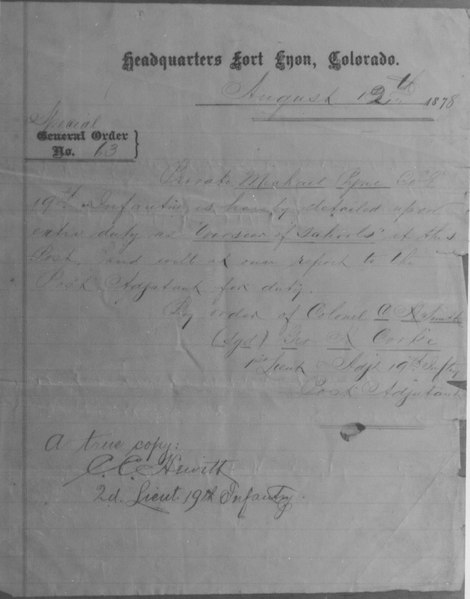 Headquarters Fort Lyon, Colorado.
August 12th 1878
Special
General Order
No. 63
Private Michael Co.
19th Infantry is hereby detailed upon
extra duty as "Overseer of Schools" at this
Post, and will at once report to the
Post Adjutant for duty.
By order of Colonel
(Sgd)
1st Lieut Adjt 19th Inftry
Post Adjutant
A true copy:
C. C. Hewitt
2d. Lieut 19th Infantry.